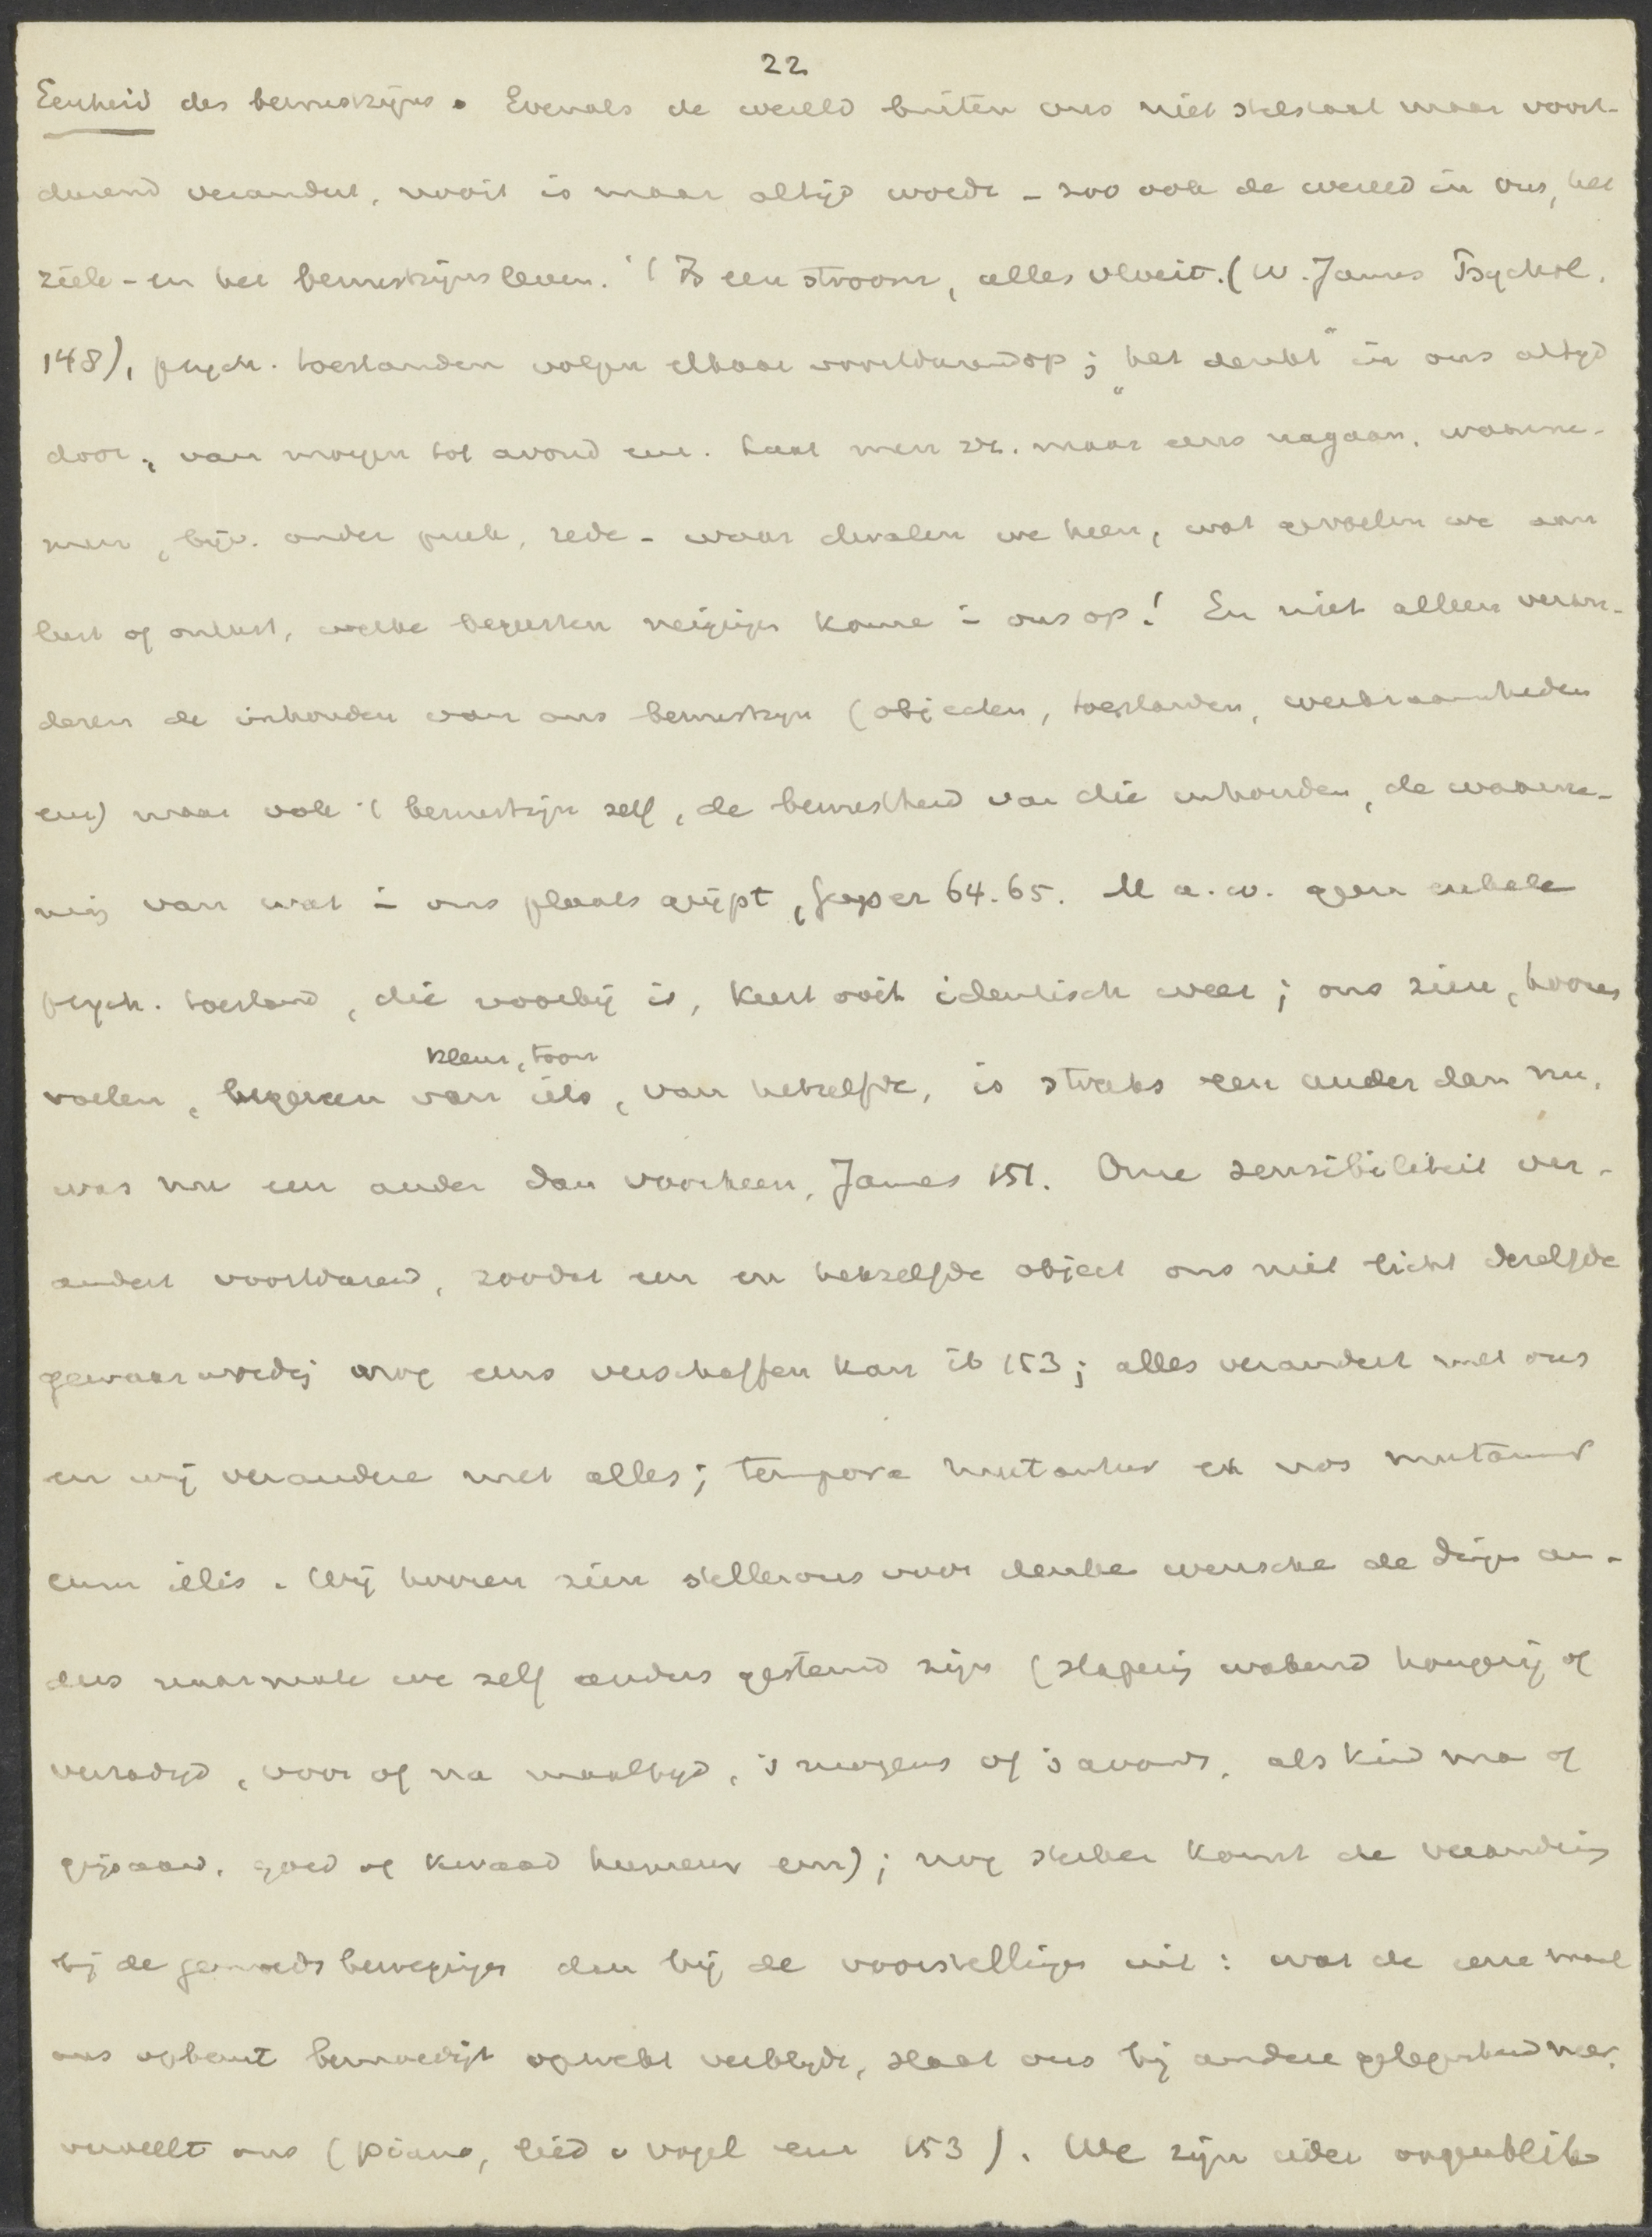 22
Eenheid des bewustzijns. Evenals de wereld buiten ons niet stilstaat maar voort-
durend verandert, nooit is maar altijd wordt - zoo ook de wereld in ons, het
ziele- en het bewustzijnsleven. 't Is een stroom, alles vloeit. (W. James Psychol.
148), psych. toestanden volgen elkaar voortdurend op; "het denkt" in ons altijd
door, van morgen tot avond enz. Laat men zich maar eens nagaan, waarne-
men, bijv. onder preek, rede - waar dwalen we heen, wat gevoelen we aan
lust of onlust, welke begeerten neigingen komen in ons op! En niet alleen veran-
deren de inhouden van ons bewustzijn (objecten, toestanden, werkzaamheden
enz) maar ook 't bewustzijn zelf, de bewustheid van die inhouden, de waarne-
ming van wat in ons plaats grijpt, Geyser 64.65. M.a.w. geen enkele
psych. toestand, die voorbij is, keert ooit identisch weer; ons zien, hooren
kleur, toon
voelen, begeeren van iets, van hetzelfde, is straks een ander dan nu,
was nu een ander dan voorheen, James 151. Onze sensibiliteit ver-
andert voortdurend, zoodat een en hetzelfde object ons niet licht dezelfde
gewaarwording nog eens verschaffen kan ib 153; alles verandert met ons
en wij veranderen met alles; tempora mutantur et nos mutamur
cum illis. Wij hooren zien stellen ons voor denken wenschen de dingen an-
ders naarmate we zelf anders gestemd zijn (slaperig wakend hongerig of
verzadigd, voor of na maaltijd, 's morgens of 's avonds, als kind man of
grijsaard, goed of kwaad humeur enz); nog sterker komt de verandering
bij de gemoedsbewegingen dan bij de voorstellingen uit: wat de eene maal
ons opbeurt bemoedigt opwekt verblijdt, slaat ons bij andere gelegenheid neer,
verveelt ons (piano, lied v vogel enz 153). We zijn ieder oogenblik